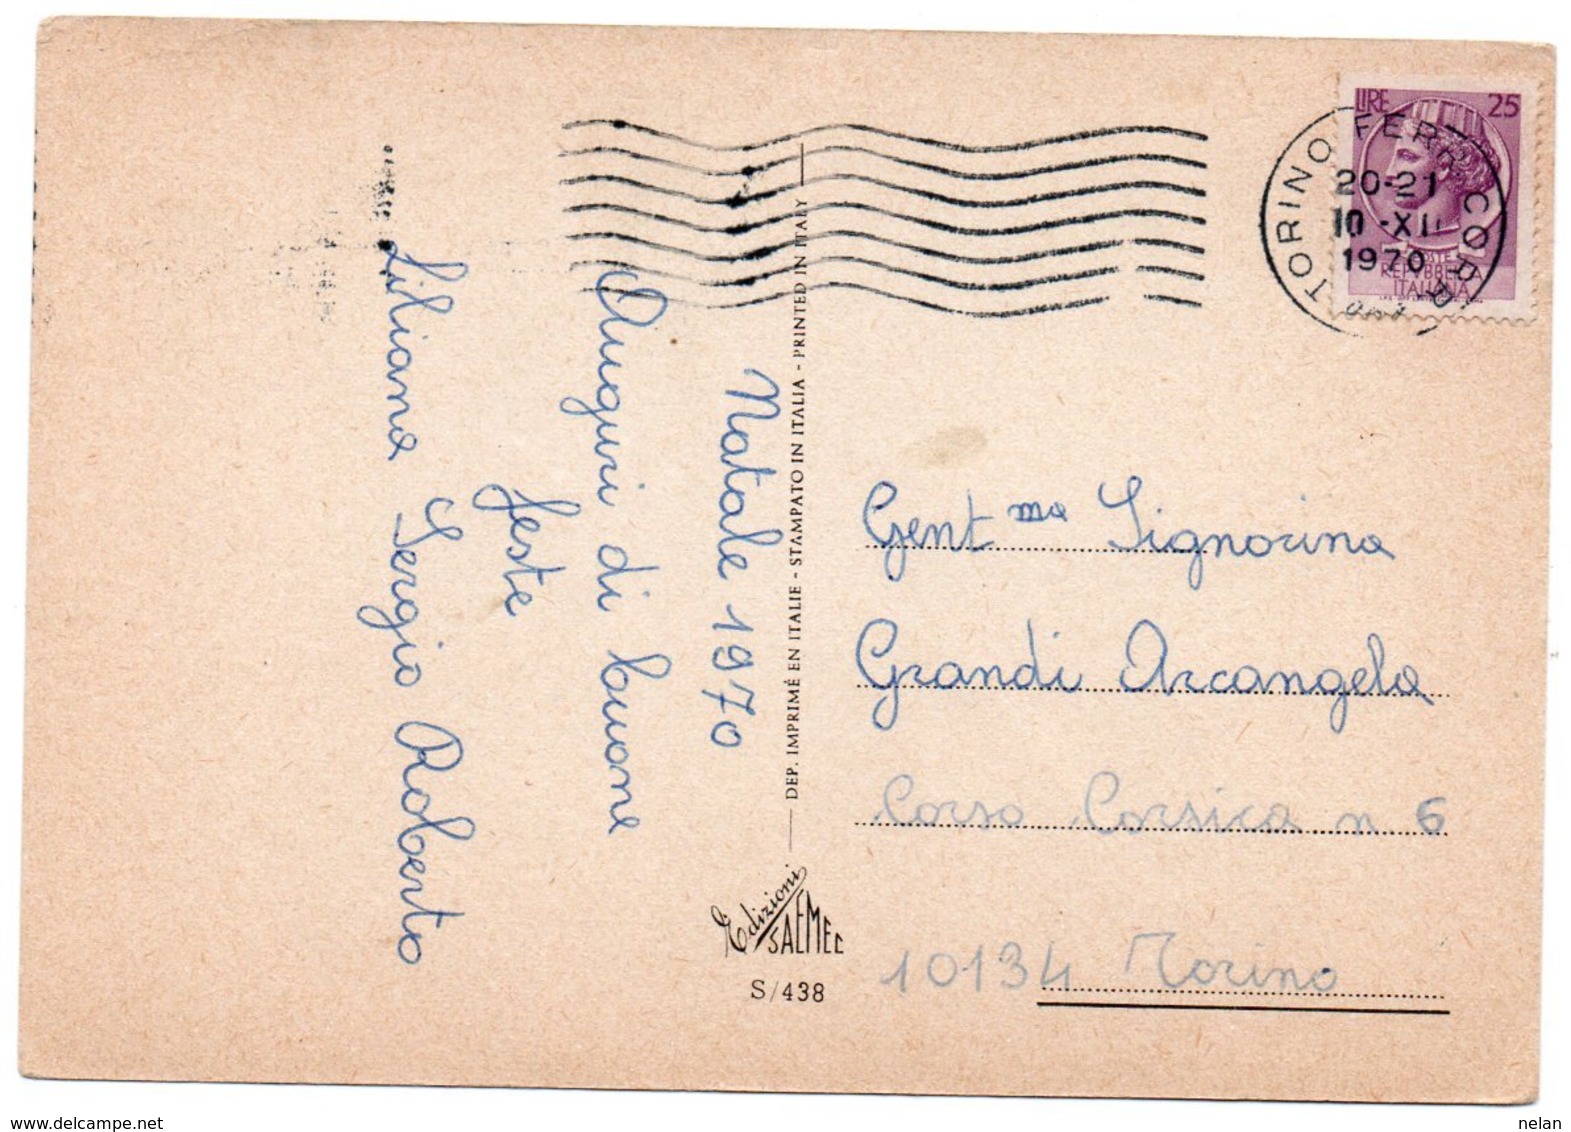 LIRE 25
TORINO FERR. CORR.
20-21
10 - XII
1970
POSTE
REPVBBLICA
ITALIANA
Natale 1970
Auguri di buone
feste
Liliana Sergio Roberto
DEP. IMPRIMÉ EN ITALIE - STAMPATO IN ITALIA - PRINTED IN ITALY
Edizioni
SAEMEC
S/438
Gent ma Signorina
Grandi Arcangela
Corso Corsica n 6
10134 Torino
www.delcampe.net
nelan